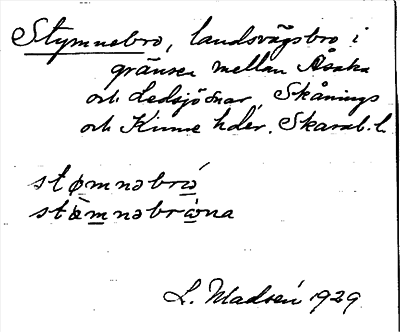 Stymnebro, landsvägsbro i
gränsen mellan Åsaka
och Ledsjö snar, Skånings
och Kinne hder. Skarab. l.
stømnəbrω
stǿmnəbrωna
L. Madsén 1929